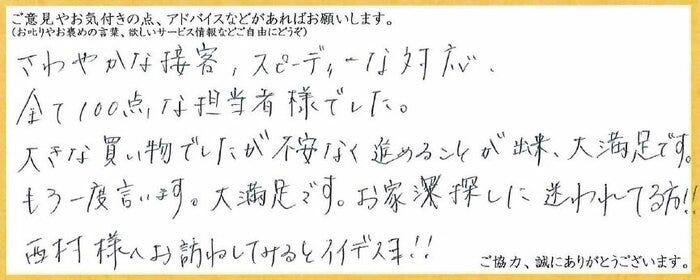 ご意見やお気付きの点、アドバイスなどがあればお願いします。
(お叱りやお褒めの言葉、欲しいサービス情報などご自由にどうぞ)
さわやかな接客、スピーディーな対応、
全て100点な担当者様でした。
大きな買い物でしたが不安なく進めることが出来、大満足です。
もう一度言います。大満足です。お家探しに迷われてる方!!
西村様へお訪ねしてみるとイイデスヨ!!
ご協力、誠にありがとうございます。